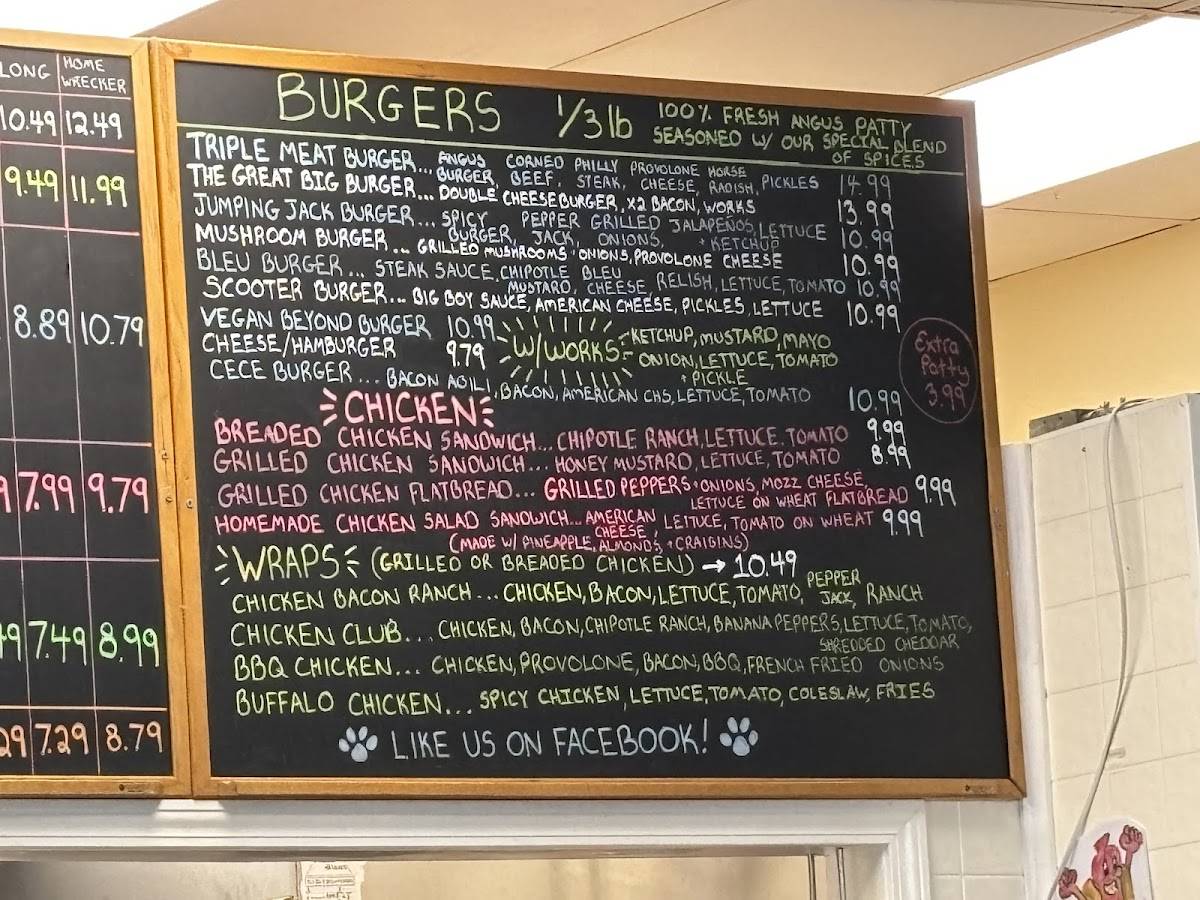 LONG HOME WRECKER
10.49 12.49
9.49 11.99
8.89 10.79
9 7.99 9.79
49 7.49 8.99
29 7.29 8.79
BURGERS 1/3 lb 100% FRESH ANGUS PATTY
SEASONED W/ OUR SPECIAL BLEND
OF SPICES
TRIPLE MEAT BURGER... ANGUS BURGER, CORNED BEEF, PHILLY STEAK, PROVOLONE CHEESE, HORSE RADISH, PICKLES 14.99
THE GREAT BIG BURGER... DOUBLE CHEESEBURGER, X2 BACON, WORKS 13.99
JUMPING JACK BURGER... SPICY BURGER, PEPPER JACK, GRILLED ONIONS, JALAPEÑOS, + KETCHUP LETTUCE 10.99
MUSHROOM BURGER... GRILLED MUSHROOMS + ONIONS, PROVOLONE CHEESE 10.99
BLEU BURGER... STEAK SAUCE, CHIPOTLE MUSTARD, BLEU CHEESE, RELISH, LETTUCE, TOMATO 10.99
SCOOTER BURGER... BIG BOY SAUCE, AMERICAN CHEESE, PICKLES, LETTUCE 10.99
VEGAN BEYOND BURGER 10.99
CHEESE/HAMBURGER 9.79
W/WORKS: KETCHUP, MUSTARD, MAYO
ONION, LETTUCE, TOMATO
+ PICKLE
CECE BURGER... BACON AOILI, BACON, AMERICAN CHS, LETTUCE, TOMATO 10.99
Extra
Patty
3.99
CHICKEN
BREADED CHICKEN SANDWICH... CHIPOTLE RANCH, LETTUCE, TOMATO 9.99
GRILLED CHICKEN SANDWICH... HONEY MUSTARD, LETTUCE, TOMATO 8.99
GRILLED CHICKEN FLATBREAD... GRILLED PEPPERS + ONIONS, MOZZ CHEESE,
LETTUCE ON WHEAT FLATBREAD 9.99
HOMEMADE CHICKEN SALAD SANDWICH... AMERICAN CHEESE, LETTUCE, TOMATO ON WHEAT 9.99
(MADE W/ PINEAPPLE, ALMONDS, + CRAIGINS)
WRAPS (GRILLED OR BREADED CHICKEN) → 10.49
CHICKEN BACON RANCH... CHICKEN, BACON, LETTUCE, TOMATO, PEPPER JACK, RANCH
CHICKEN CLUB... CHICKEN, BACON, CHIPOTLE RANCH, BANANA PEPPERS, LETTUCE, TOMATO,
SHREDDED CHEDDAR
BBQ CHICKEN... CHICKEN, PROVOLONE, BACON, BBQ, FRENCH FRIED ONIONS
BUFFALO CHICKEN... SPICY CHICKEN, LETTUCE, TOMATO, COLESLAW, FRIES
LIKE US ON FACEBOOK!